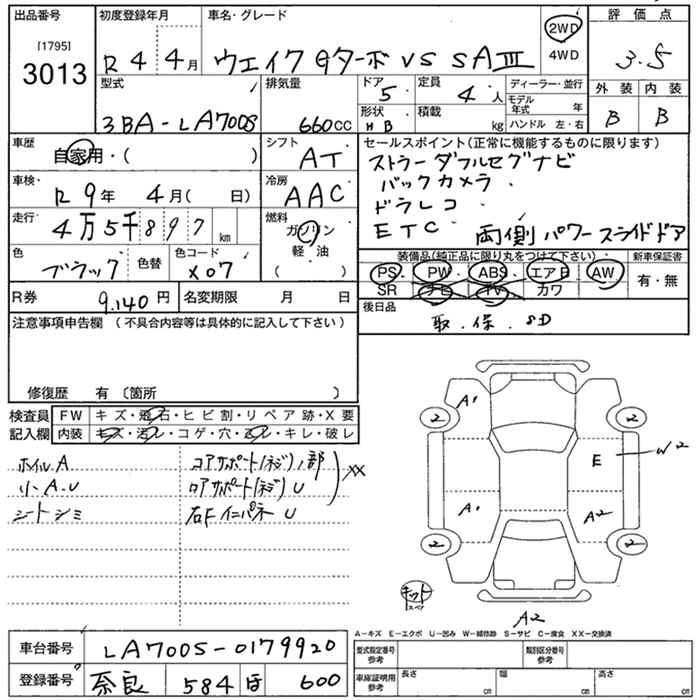 出品番号 初度登録年月 車名・グレード 2WD 評価点
[1795]
3013 R4 4月 ウェイク Gターボ VS SAⅢ 4WD 3.5
型式 排気量 ドア 5 定員 4人 ディーラー・並行 外装 内装
3BA-LA700S 660CC 形状 HB 積載 kg モデル年式 年 B B
ハンドル 左・右
車歴 自家用・( ) シフト AT セールスポイント(正常に機能するものに限ります)
ストラーダフルセグナビ
車検・ R9年 4月( 日) 冷房 AAC バックカメラ
ドラレコ
走行 4万5千897km 燃料 ガソリン・軽油 ( ) ETC 両側パワースライドドア
色 ブラック 色替 色コード X07 装備品(純正品に限り丸をつけて下さい) 新車保証書
PS・PW・ABS・エアB・AW 有・無
SR ナビ TV カワ
R券 9,140円 名変期限 月 日 後日品
取.保.SD
注意事項申告欄 (不具合内容等は具体的に記入して下さい)
修復歴 有 〔箇所 〕
検査員 FW キズ・飛石・ヒビ割・リペア跡・X要
記入欄 内装 キズ・汚レ・コゲ・穴・ヌレ・キレ・破レ
ホイルA コアサポート(ネジ)ノ部
リーA.U ロアサポート(ネジ)U XX
シートシミ 右Fインパネ U
A1 2 2
E W2
A1 A2
2 2
キット
スペア
A2
A-キズ E-エクボ U-凹み W-補修跡 S-サビ C-腐食 XX-交換済
車台番号 LA700S-0179920 型式指定番号 参考 類別区分番号 参考
登録番号 奈良 584 ほ 600 車庫証明用 参考 長さ cm 幅 cm 高さ cm